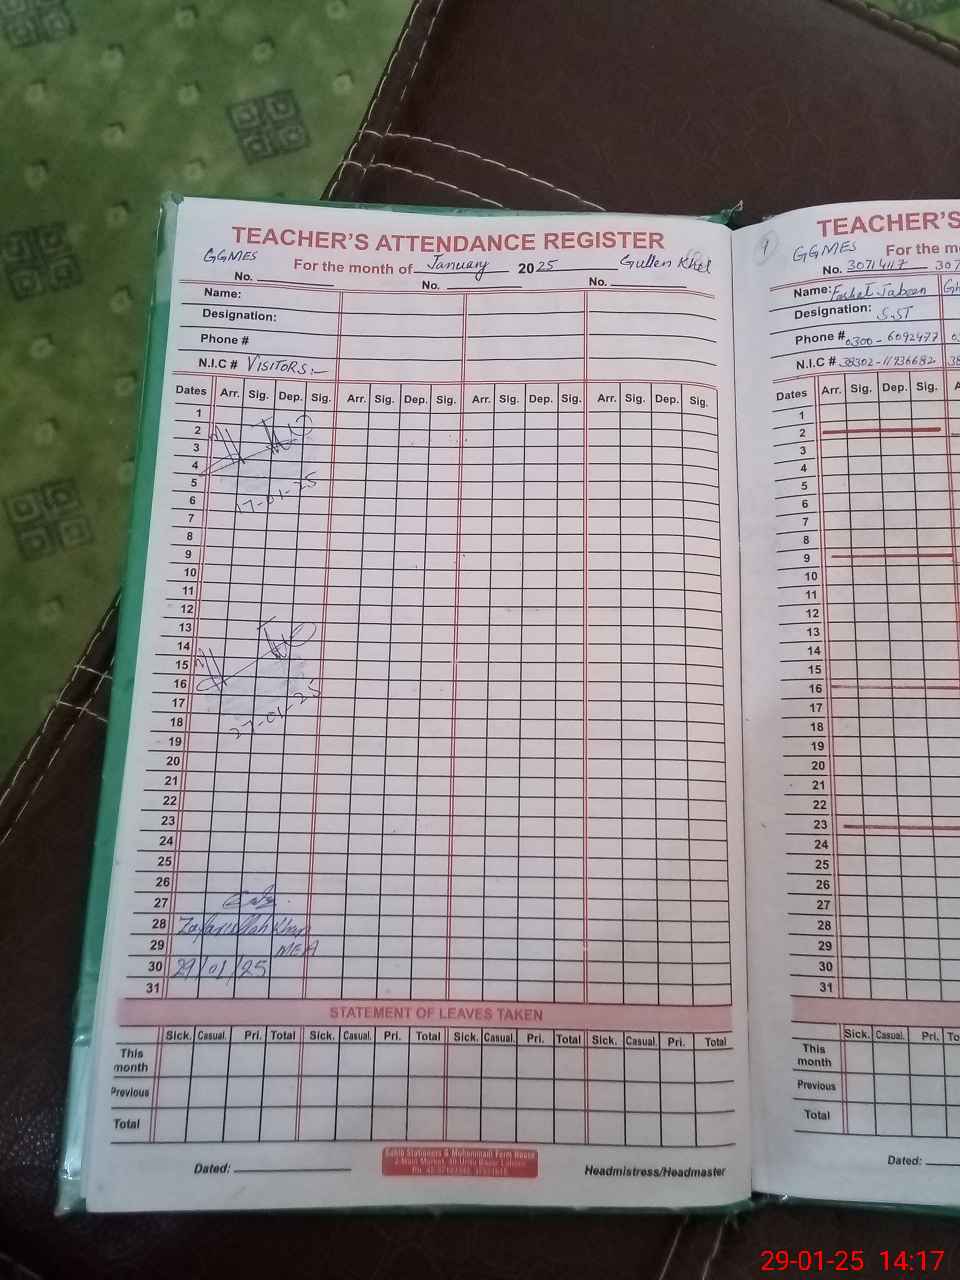 TEACHER'S ATTENDANCE REGISTER
GGMES
For the month of January 2025 Gullen Khel
No. No. No.
Name:
Designation:
Phone #
N.I.C # VISITORS:-
Dates Arr. Sig. Dep. Sig. Arr. Sig. Dep. Sig. Arr. Sig. Dep. Sig. Arr. Sig. Dep. Sig.
1
2
3
4
5
17-01-25
6
7
8
9
10
11
12
13
14
15
16
17
27-01-25
18
19
20
21
22
23
24
25
26
27
28 Zafarullah Khan
29 MEA
30 29/01/25
31
STATEMENT OF LEAVES TAKEN
Sick. Casual. Pri. Total Sick. Casual. Pri. Total Sick. Casual. Pri. Total Sick. Casual. Pri. Total
This month
Previous
Total
Dated:
Headmistress/Headmaster
TEACHER'S
9 GGMES
For the mo
No. 30714117 307
Name: Farhat Jabeen Gh
Designation: S.ST
Phone # 0300-6092477
N.I.C # 38302-11936682
Dates Arr. Sig. Dep. Sig. A
1
2
3
4
5
6
7
8
9
10
11
12
13
14
15
16
17
18
19
20
21
22
23
24
25
26
27
28
29
30
31
Sick. Casual. Pri. To
This month
Previous
Total
Dated:
29-01-25 14:17